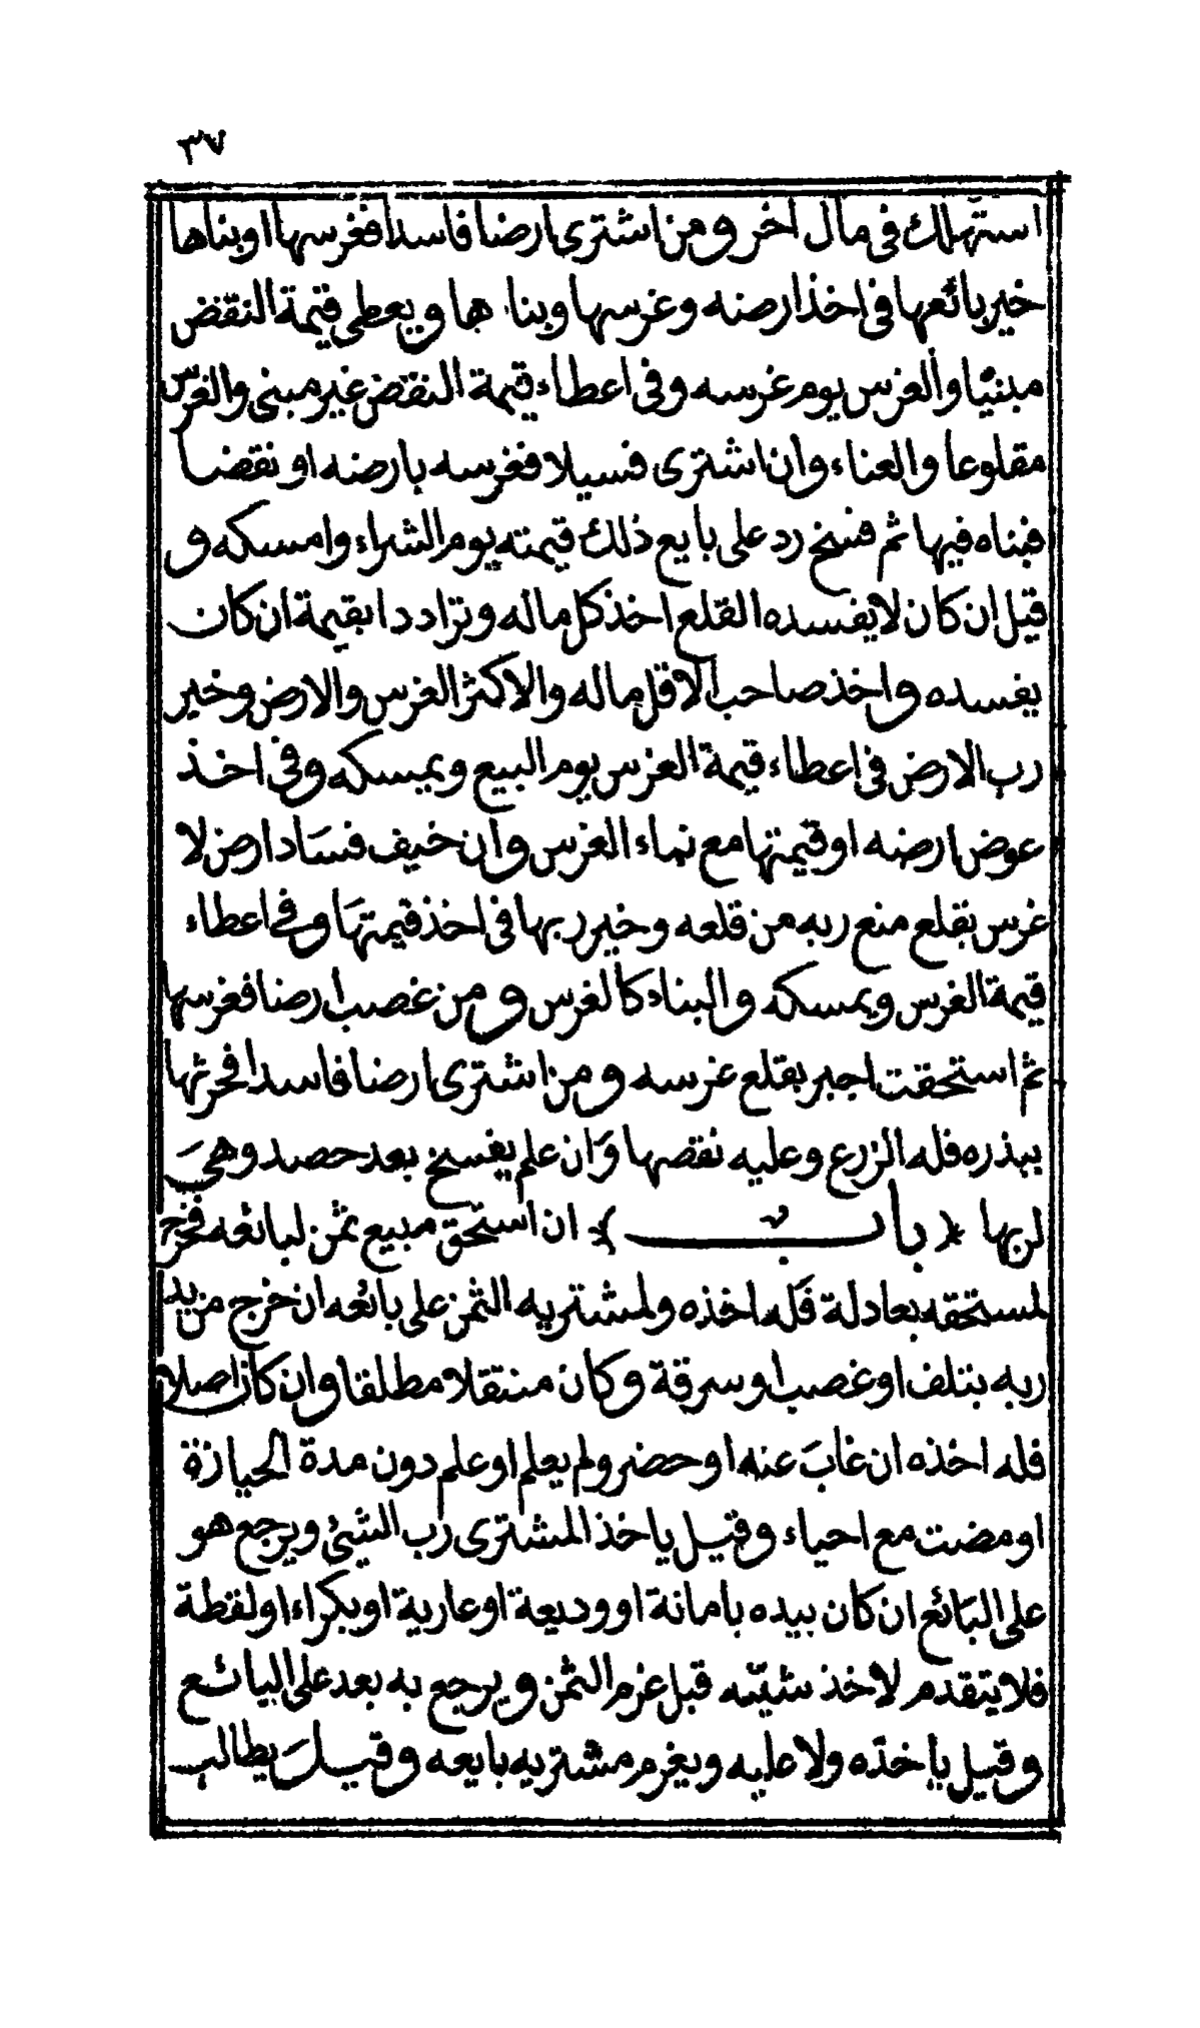 ٣٧
استهلك في مال آخر ومن اشترى ارضا فاسدا فغرسها او بناها
خير بائعها في اخذ ارضه وغرسها وبنا ها ويعطى قيمة النقض
مبنيا والغرس يوم غرسه وفي اعطاء قيمة النقض غير مبني والغرس
مقلوعا والعناء وان اشترى فسيلا فغرسه بارضه او نقضا
فبناه فيها ثم فسخ رد على بايع ذلك قيمته يوم الشراء وامسكه و
قيل ان كان لا يفسده القلع اخذ كل ماله وترادد ا بقيمة ان كان
يفسده واخذ صاحب الاقل ماله والاكثر الغرس والارض وخير
رب الارض في اعطاء قيمة الغرس يوم البيع ويمسكه وفي اخذ
عوض ارضه او قيمتها مع نماء الغرس وان خيف فسَاد ارض لا
غرس بقلع منع ربه من قلعه وخير ربها في اخذ قيمتهَا وفي اعطاء
قيمة الغرس ويمسكه والبناء كالغرس ومن غصب ارضا فغرسها
ثم استحقت اجبر بقلع غرسه ومن اشترى ارضا فاسدا فحرثها
ببذره فله الزرع وعليه نقصها وَان علم يفسخ بعد حصد وهيَ
لربها ﴿ باب ﴾ ان استحق مبيع بثمن لبائعه فخرج
لمستحقه بعادلة فَله اخذه ولمشتريه الثمن على بائعه ان خرج من يد
ربه بتلف او غصب او سرقة وكان منتقلا مطلقا وان كان اصلا
فله اخذه ان غابَ عنه او حضر ولم يعلم او علم دون مدة الحيازة
او مضت مع احياء وقيل ياخذ المشترى رب الشيئ ويرجع هو
على البَائع ان كان بيده بامانة او وديعة او عارية او بكراء او لقطة
فلا يتقدم لاخذ شيئه قبل غرم الثمن ويرجع به بعد على البائع
وقيل يأخذه ولا عليه ويغرم مشتريه بايعه وقيلَ يطالب